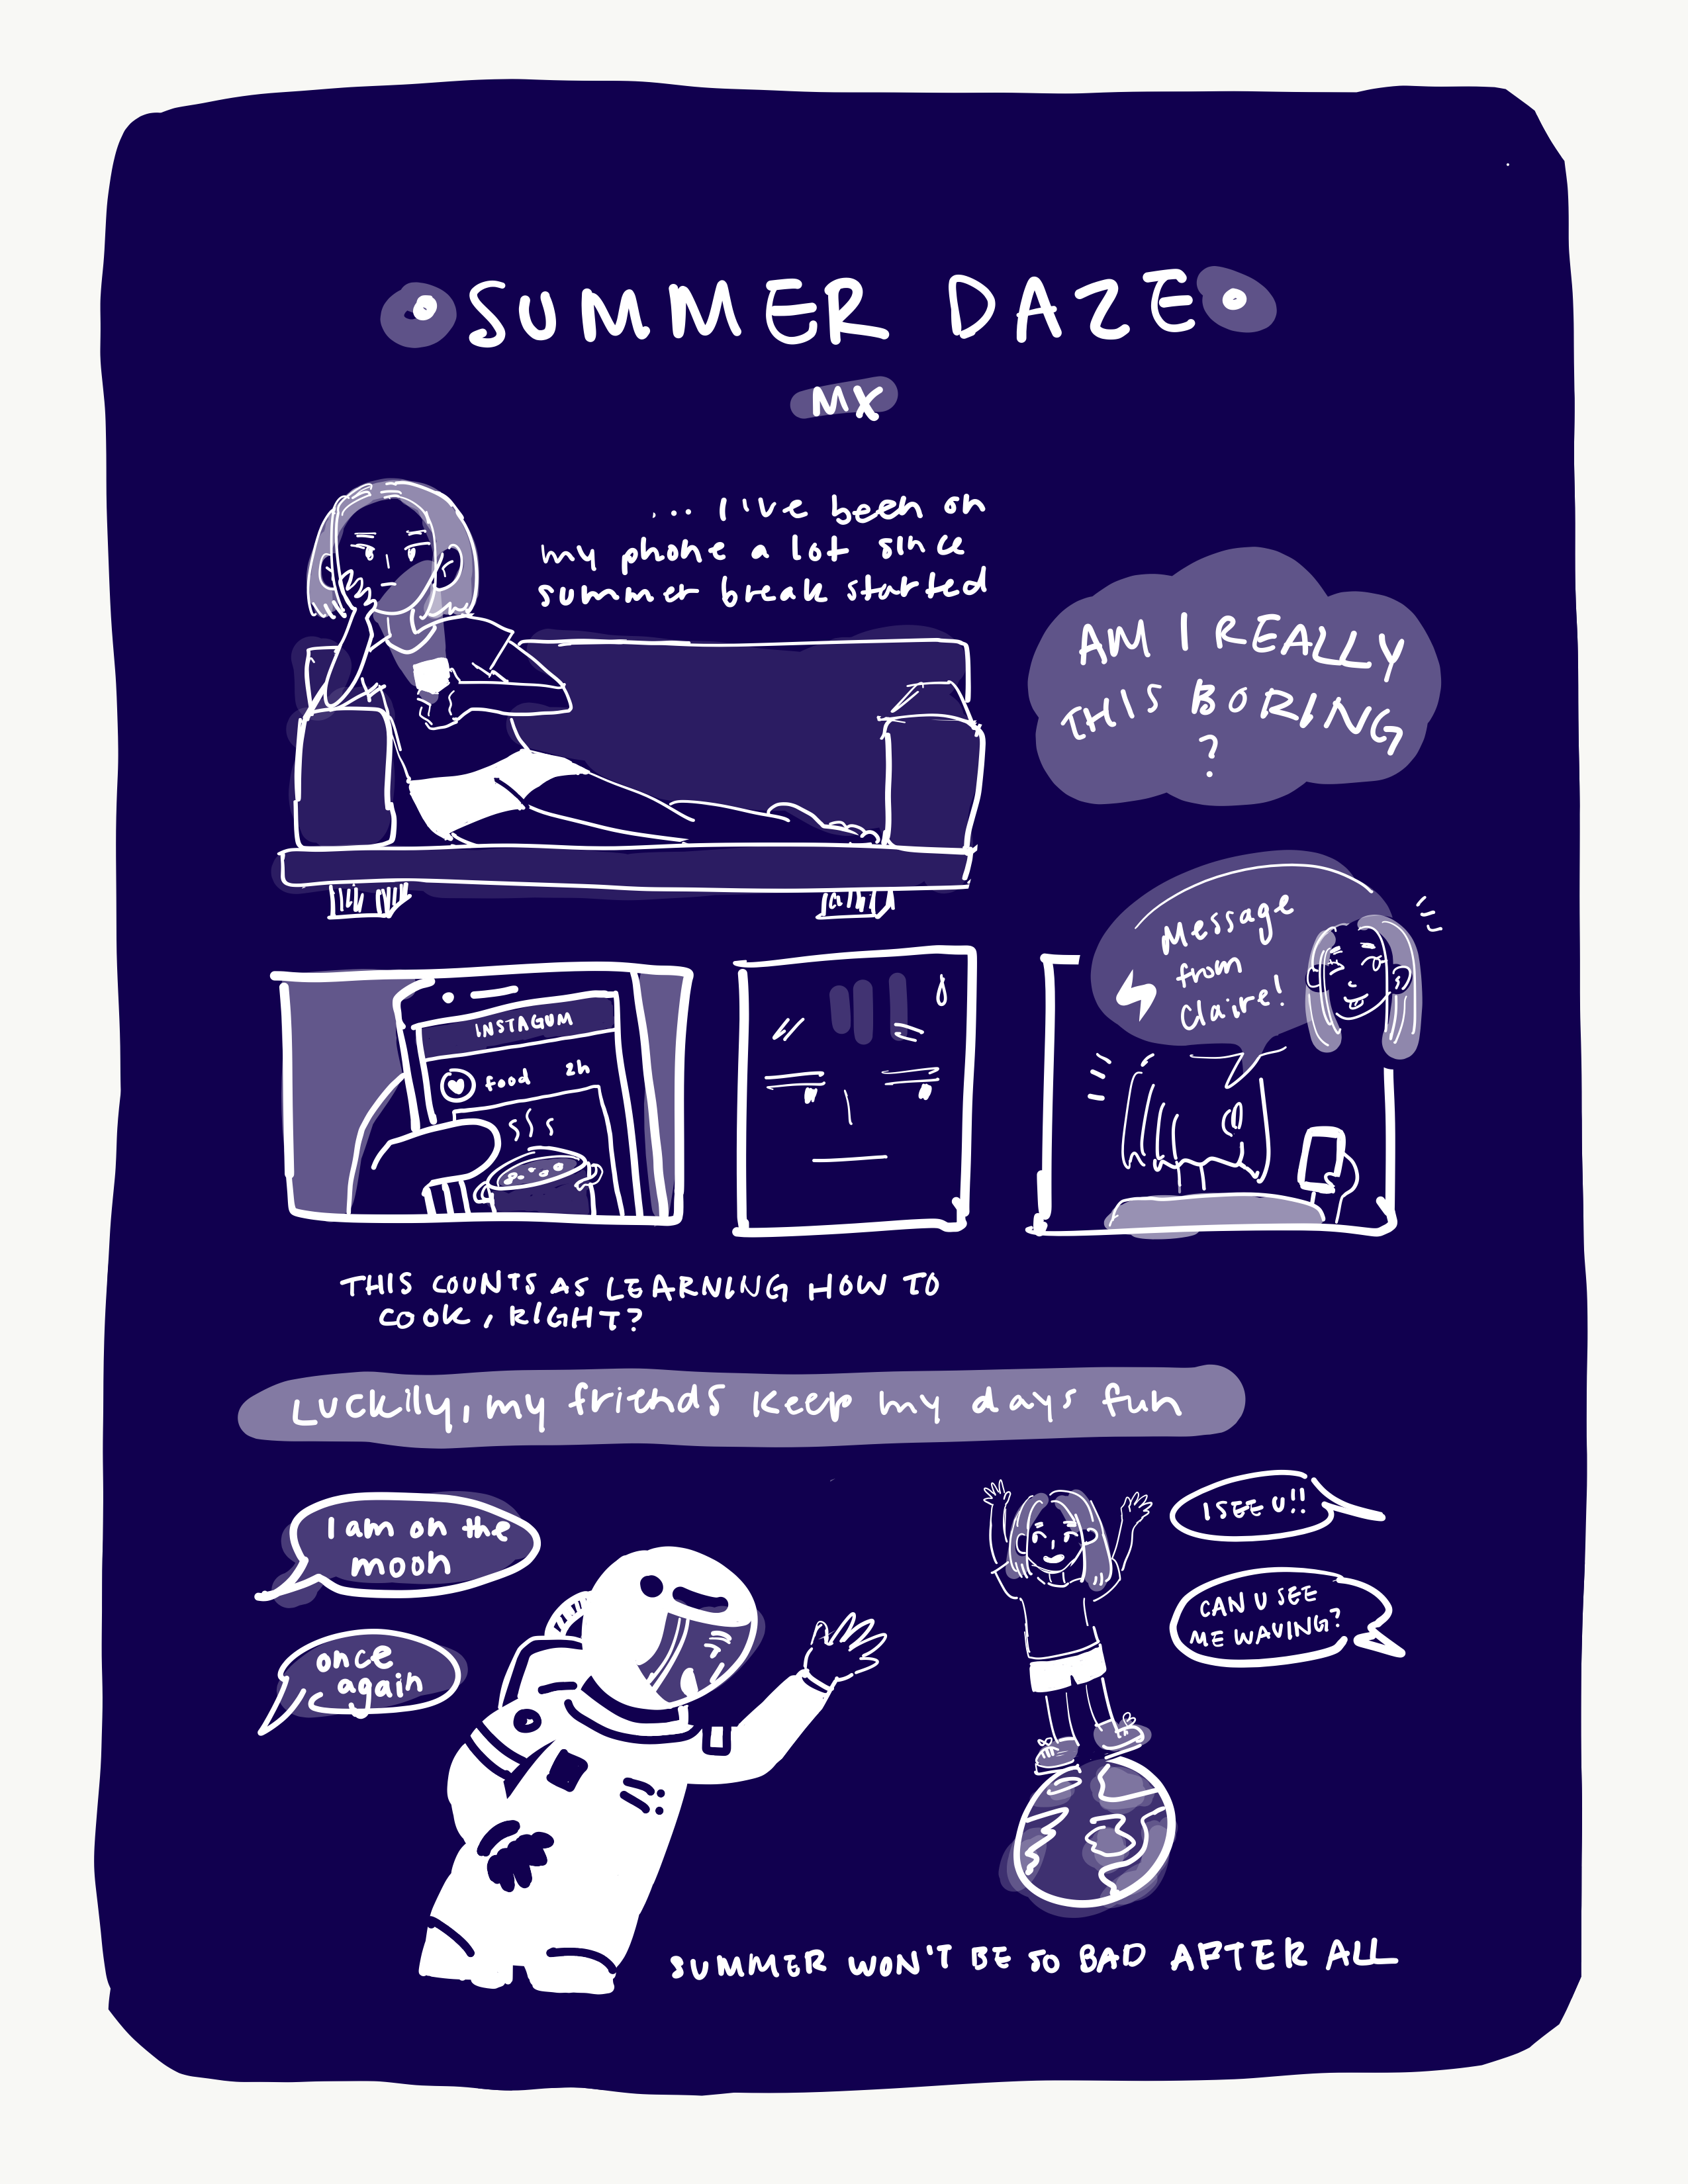 SUMMER DAZE
MX
... I've been on
my phone a lot since
summer break started
AM I REALLY
THIS BORING
?
INSTAGUM
food 2h
Message
from
Claire!
THIS COUNTS AS LEARNING HOW TO
COOK, RIGHT?
Luckily, my friends keep my days fun
I am on the
moon
once
again
I SEE U!!
CAN U SEE
ME WAVING?
SUMMER WON'T BE SO BAD AFTER ALL